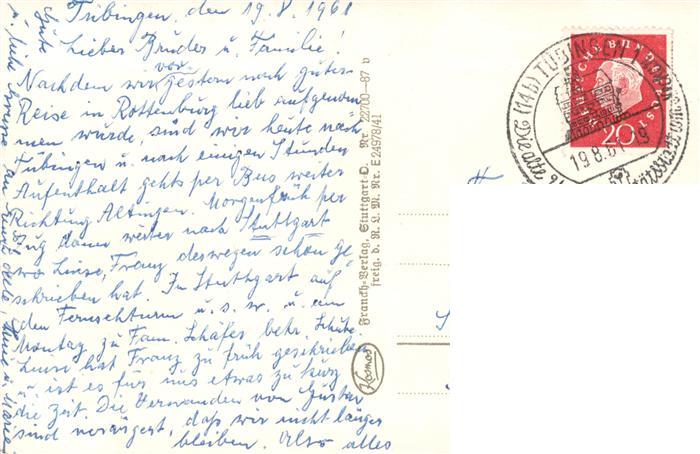 Tübingen, den 19.8.1961
Lieber Bruder u. Familie!
Nachdem wir vorgestern nach guter
Reise in Rottenburg lieb aufgenom
men wurde, sind wir heute nach
Tübingen u. nach einigen Stunden
Aufenthalt gehts per Bus weiter
Richtung Altingen. Morgenfrüh per
Zug dann weiter nach Stuttgart
wo Luise, Franz deswegen schon ge
schrieben hat. In Stuttgart auf
den Fernsehturm u. s. w. u. am
Montag zu Fam. Schäfer bekr.
Luise hat Franz zu früh geschrieben
u. ist es für uns etwas zu kurz
die Zeit. Die Verwanden von Gustav
sind verärgert, daß wir nicht länger
bleiben. Also alles
Gute
u. liebe Grüsse an
Franckh-Verlag, Stuttgart-O Nr. 22700—87 v
freig. d. R. L. M. Nr. E 24978/41
Kosmos
DEUTSCHE BUNDESPOST
20
(14b) TÜBINGEN 1
19.8.61-19
Die alte